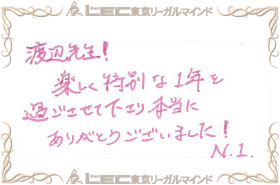 LEC東京リーガルマインド
渡辺先生!
楽しく特別な1年を
過ごさせて下さり本当に
ありがとうございました!
N.I.
LEC東京リーガルマインド